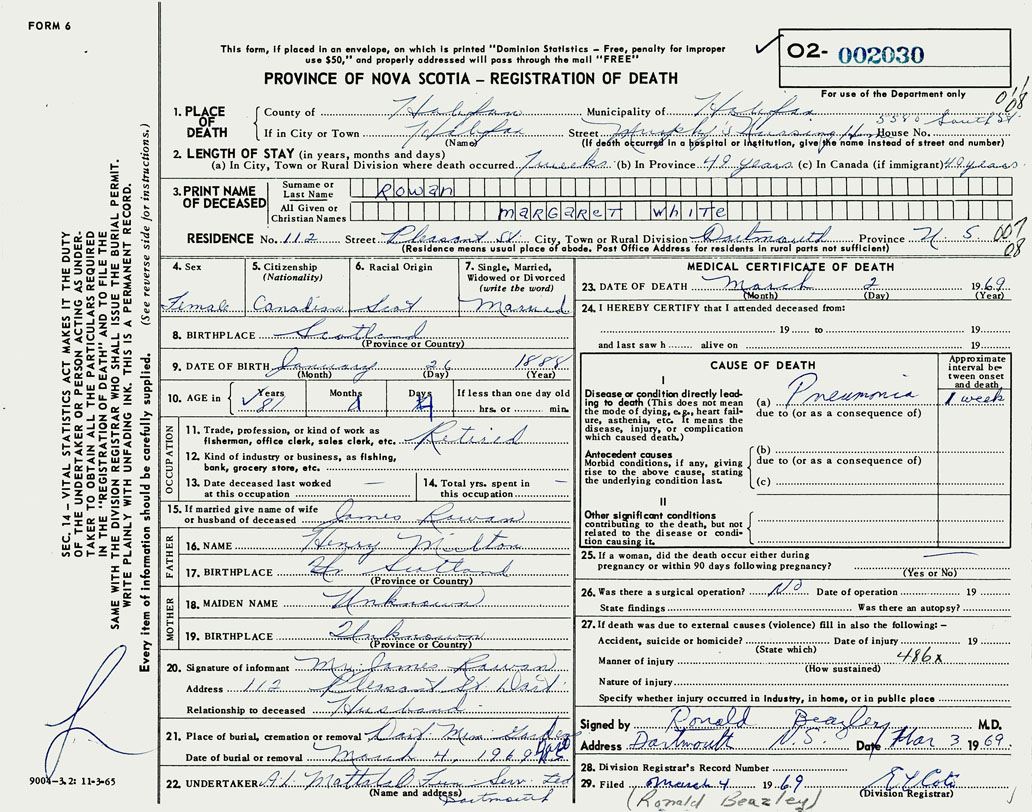 FORM 6
This form, if placed in an envelope, on which is printed "Dominion Statistics – Free, penalty for improper
use $50," and properly addressed will pass through the mail "FREE"
PROVINCE OF NOVA SCOTIA – REGISTRATION OF DEATH
02- 002030
For use of the Department only
SEC. 14 – VITAL STATISTICS ACT MAKES IT THE DUTY
OF THE UNDERTAKER OR PERSON ACTING AS UNDER-
TAKER TO OBTAIN ALL THE PARTICULARS REQUIRED
IN THE "REGISTRATION OF DEATH" AND TO FILE THE
SAME WITH THE DIVISION REGISTRAR WHO SHALL ISSUE THE BURIAL PERMIT.
WRITE PLAINLY WITH UNFADING INK. THIS IS A PERMANENT RECORD.
Every item of information should be carefully supplied. (See reverse side for instructions.)
1. PLACE OF DEATH
County of Halifax Municipality of Halifax
5580 South St.
If in City or Town Halifax Street Murphy's Nursing H. House No.
(Name) (If death occurred in a hospital or institution, give the name instead of street and number)
2. LENGTH OF STAY (in years, months and days)
(a) In City, Town or Rural Division where death occurred 7 weeks (b) In Province 49 years (c) In Canada (if immigrant) 49 years
3. PRINT NAME OF DECEASED
Surname or Last Name Rowan
All Given or Christian Names MARGARETT WHITE
RESIDENCE No. 112 Street Pleasant St. City, Town or Rural Division Dartmouth Province N. S.
(Residence means usual place of abode. Post Office Address for residents in rural parts not sufficient)
4. Sex Female
5. Citizenship (Nationality) Canadian
6. Racial Origin Scot
7. Single, Married, Widowed or Divorced (write the word) Married
8. BIRTHPLACE Scotland
(Province or Country)
9. DATE OF BIRTH January 26 1888
(Month) (Day) (Year)
10. AGE in Years 81 Months Days If less than one day old hrs. or min.
OCCUPATION
11. Trade, profession, or kind of work as
fisherman, office clerk, sales clerk, etc. Retired
12. Kind of industry or business, as fishing,
bank, grocery store, etc.
13. Date deceased last worked
at this occupation —
14. Total yrs. spent in
this occupation —
15. If married give name of wife
or husband of deceased James Rowan
FATHER
16. NAME Henry Milton
17. BIRTHPLACE Scotland
(Province or Country)
MOTHER
18. MAIDEN NAME Unknown
19. BIRTHPLACE Unknown
(Province or Country)
20. Signature of informant Mr. James Rowan
Address 112 Pleasant St Dart.
Relationship to deceased Husband
21. Place of burial, cremation or removal Dart. Mem. Gardens
Date of burial or removal March 4, 1969
22. UNDERTAKER Fun. Serv. Ltd
(Name and address) Dartmouth
MEDICAL CERTIFICATE OF DEATH
23. DATE OF DEATH March 2 1969
(Month) (Day) (Year)
24. I HEREBY CERTIFY that I attended deceased from:
19 to 19
and last saw h alive on 19
CAUSE OF DEATH
Approximate interval between onset and death
I
Disease or condition directly lead-
ing to death (This does not mean
the mode of dying, e.g., heart fail-
ure, asthenia, etc. It means the
disease, injury, or complication
which caused death.)
(a) Pneumonia 1 week
due to (or as a consequence of)
Antecedent causes
Morbid conditions, if any, giving
rise to the above cause, stating
the underlying condition last.
(b)
due to (or as a consequence of)
(c)
II
Other significant conditions
contributing to the death, but not
related to the disease or condi-
tion causing it.
25. If a woman, did the death occur either during
pregnancy or within 90 days following pregnancy? —
(Yes or No)
26. Was there a surgical operation? NO Date of operation 19
State findings Was there an autopsy?
27. If death was due to external causes (violence) fill in also the following: –
Accident, suicide or homicide? Date of injury 19
(State which)
Manner of injury 486x
(How sustained)
Nature of injury
Specify whether injury occurred in industry, in home, or in public place
Signed by Ronald Beazley M.D.
Address Dartmouth N.S. Date Mar 3 1969
28. Division Registrar's Record Number
29. Filed March 4 1969
(Division Registrar)
(Ronald Beazley)
9004-3.2: 11-3-65